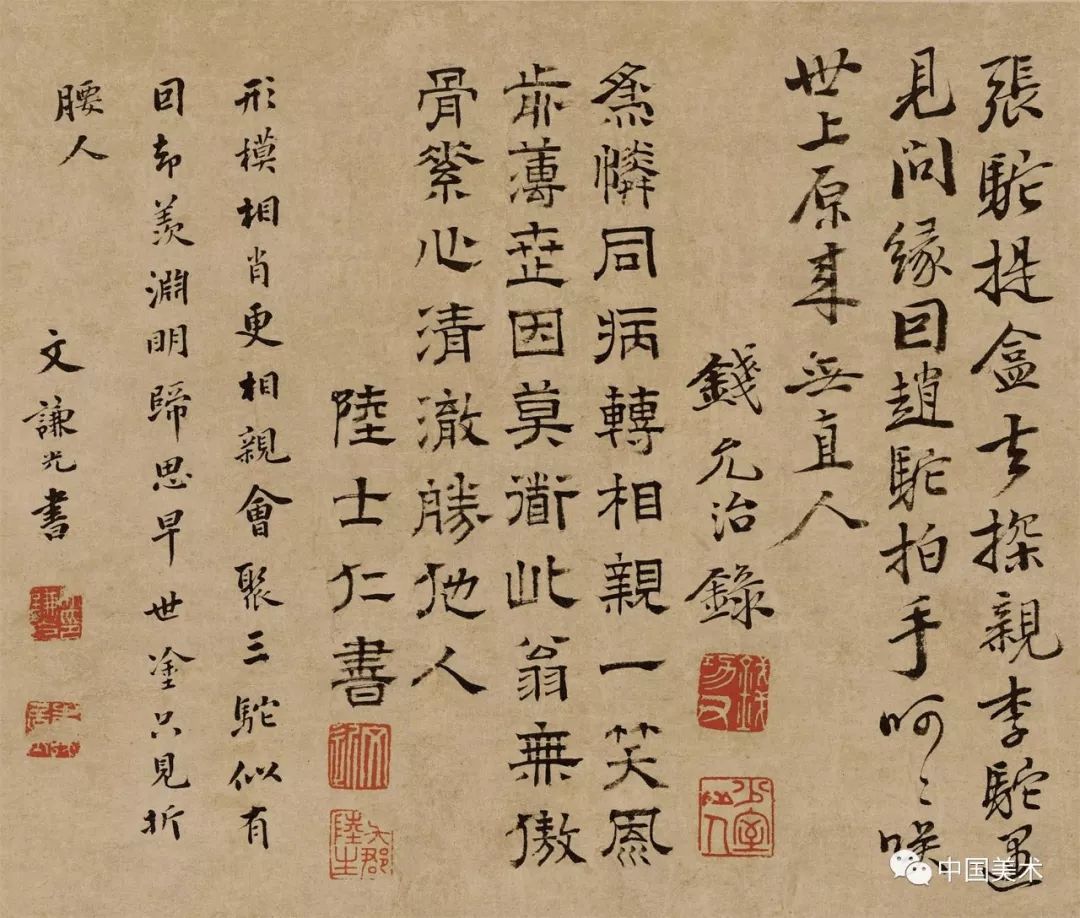 張駝提盒去探親李駝遇
見問緣囙趙駝拍手呵〻咲
世上原来無直人
錢允治錄
為憐同病轉相親一笑風
歬薄世因莫衟此翁無傲
骨素心清澈勝他人
陸士仁書
形模相肖更相親會聚三駝似有
囙却羨淵明歸思早世塗只見折
腰人
文謙光書
中国美术